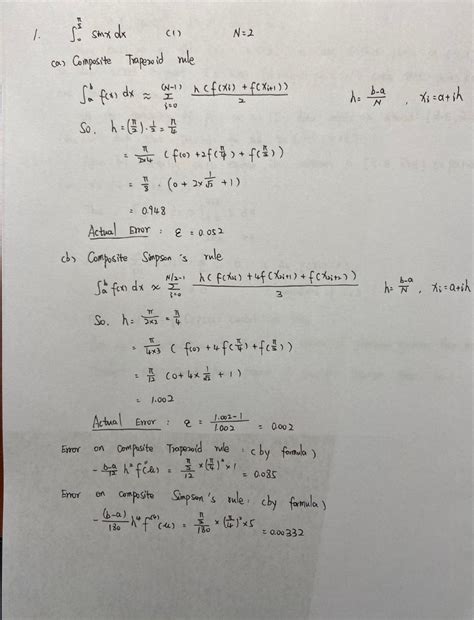 1. ∫₀^(π/2) sin x dx (1) N=2
(a) Composite Trapezoid rule
∫ₐᵇ f(x) dx ≈ Σ_(i=0)^(N-1) h(f(xᵢ) + f(xᵢ₊₁))/2 h = (b-a)/N , xᵢ = a+ih
So, h = (π/2)·½ = π/4
= π/(2×4) (f(0) + 2f(π/4) + f(π/2))
= π/8 · (0 + 2× 1/√2 + 1)
= 0.948
Actual Error : ε = 0.052
(b) Composite Simpson's rule
∫ₐᵇ f(x) dx ≈ Σ_(i=0)^(N/2-1) h(f(x₂ᵢ) + 4f(x₂ᵢ₊₁) + f(x₂ᵢ₊₂))/3 h = (b-a)/N , xᵢ = a+ih
So, h = π/(2×2) = π/4
= π/(4×3) (f(0) + 4f(π/4) + f(π/2))
= π/12 (0 + 4× 1/√2 + 1)
= 1.002
Actual Error : ε = (1.002-1)/1.002 = 0.002
Error on composite Trapezoid rule : (by formula)
- (b-a)/12 h² f''(u) = (π/2)/12 × (π/4)² × 1 = 0.085
Error on composite Simpson's rule : (by formula)
- (b-a)/180 h⁴ f⁽⁴⁾(u) = (π/2)/180 × (π/4)⁴ × 5 = 0.00332